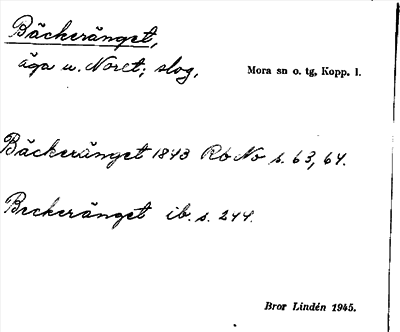 Bäckeränget,
äga u. Noret; slog.
Mora sn o. tg, Kopp. l.
Bäckeränget 1843 Rb No s. 63, 64.
Beckeränget ib. s. 244.
Bror Lindén 1945.